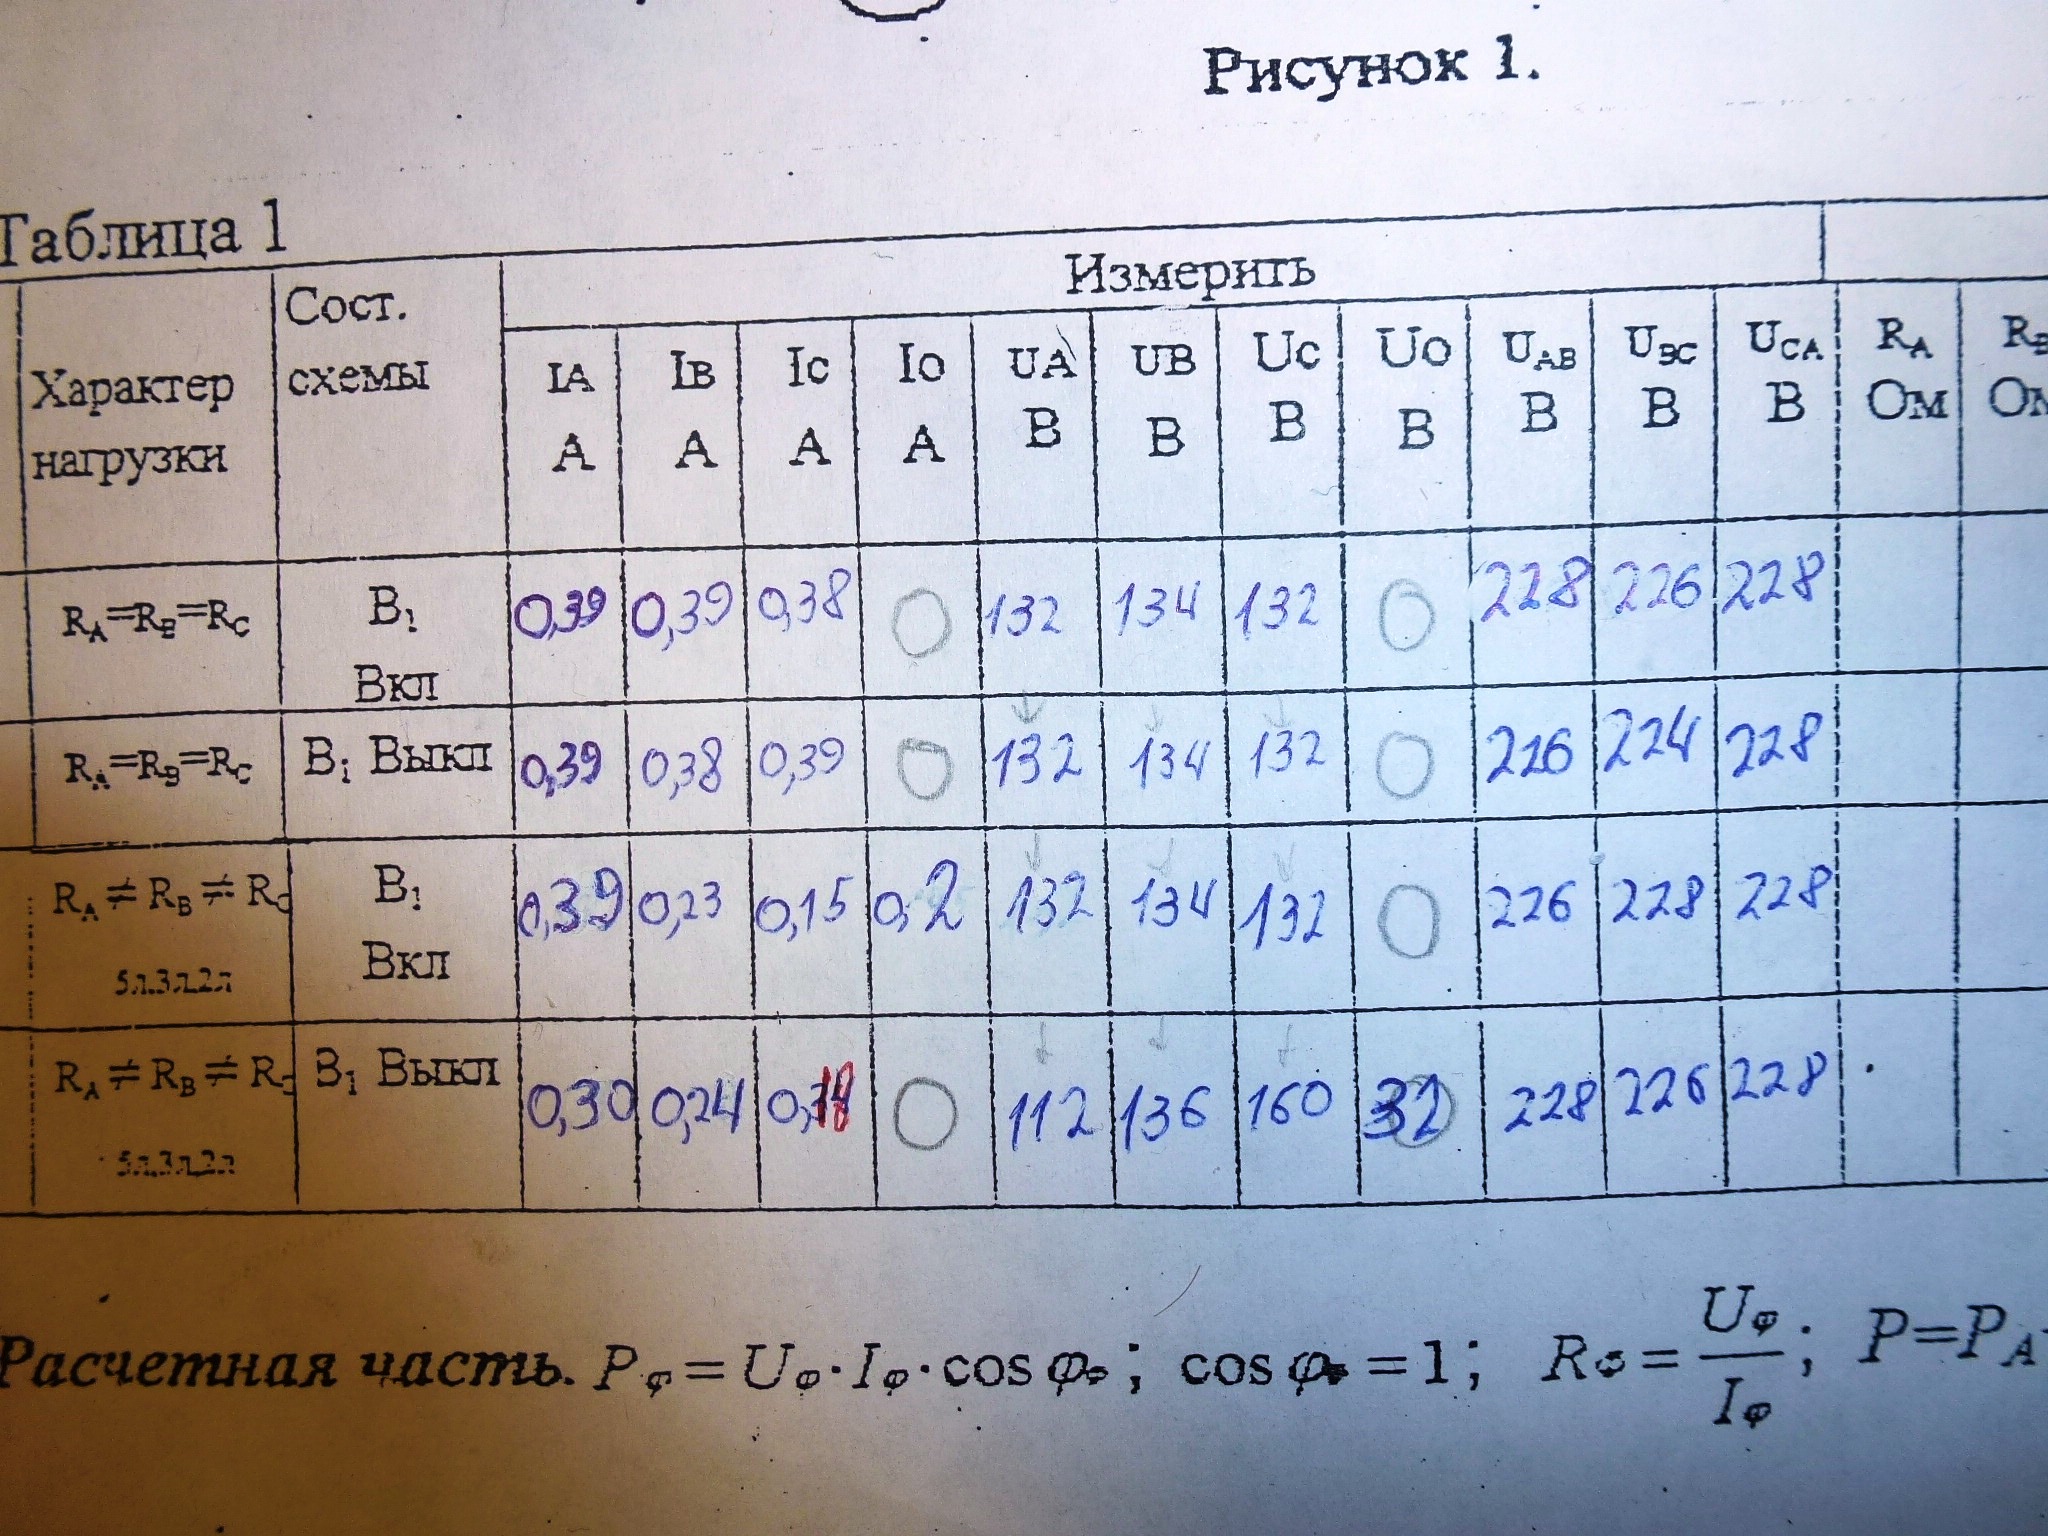 Рисунок 1.
Таблица 1
Характер нагрузки Сост. схемы Измерить
IA А IB А IC А IO А UA В UB В UC В UO В UAB В UBC В UCA В RA Ом
RA=RB=RC B1 Вкл 0,39 0,39 0,38 0 132 134 132 0 228 226 228
RA=RB=RC B1 Выкл 0,39 0,38 0,39 0 132 134 132 0 226 224 228
RA ≠ RB ≠ RC 5л,3л,2л B1 Вкл 0,39 0,23 0,15 0,2 132 134 132 0 226 228 228
RA ≠ RB ≠ RC 5л,3л,2л B1 Выкл 0,30 0,24 0,18 0 112 136 160 32 228 226 228
Расчетная часть. Pφ = Uφ·Iφ·cos φφ; cos φφ = 1; Rφ = Uφ/Iφ; P=PA